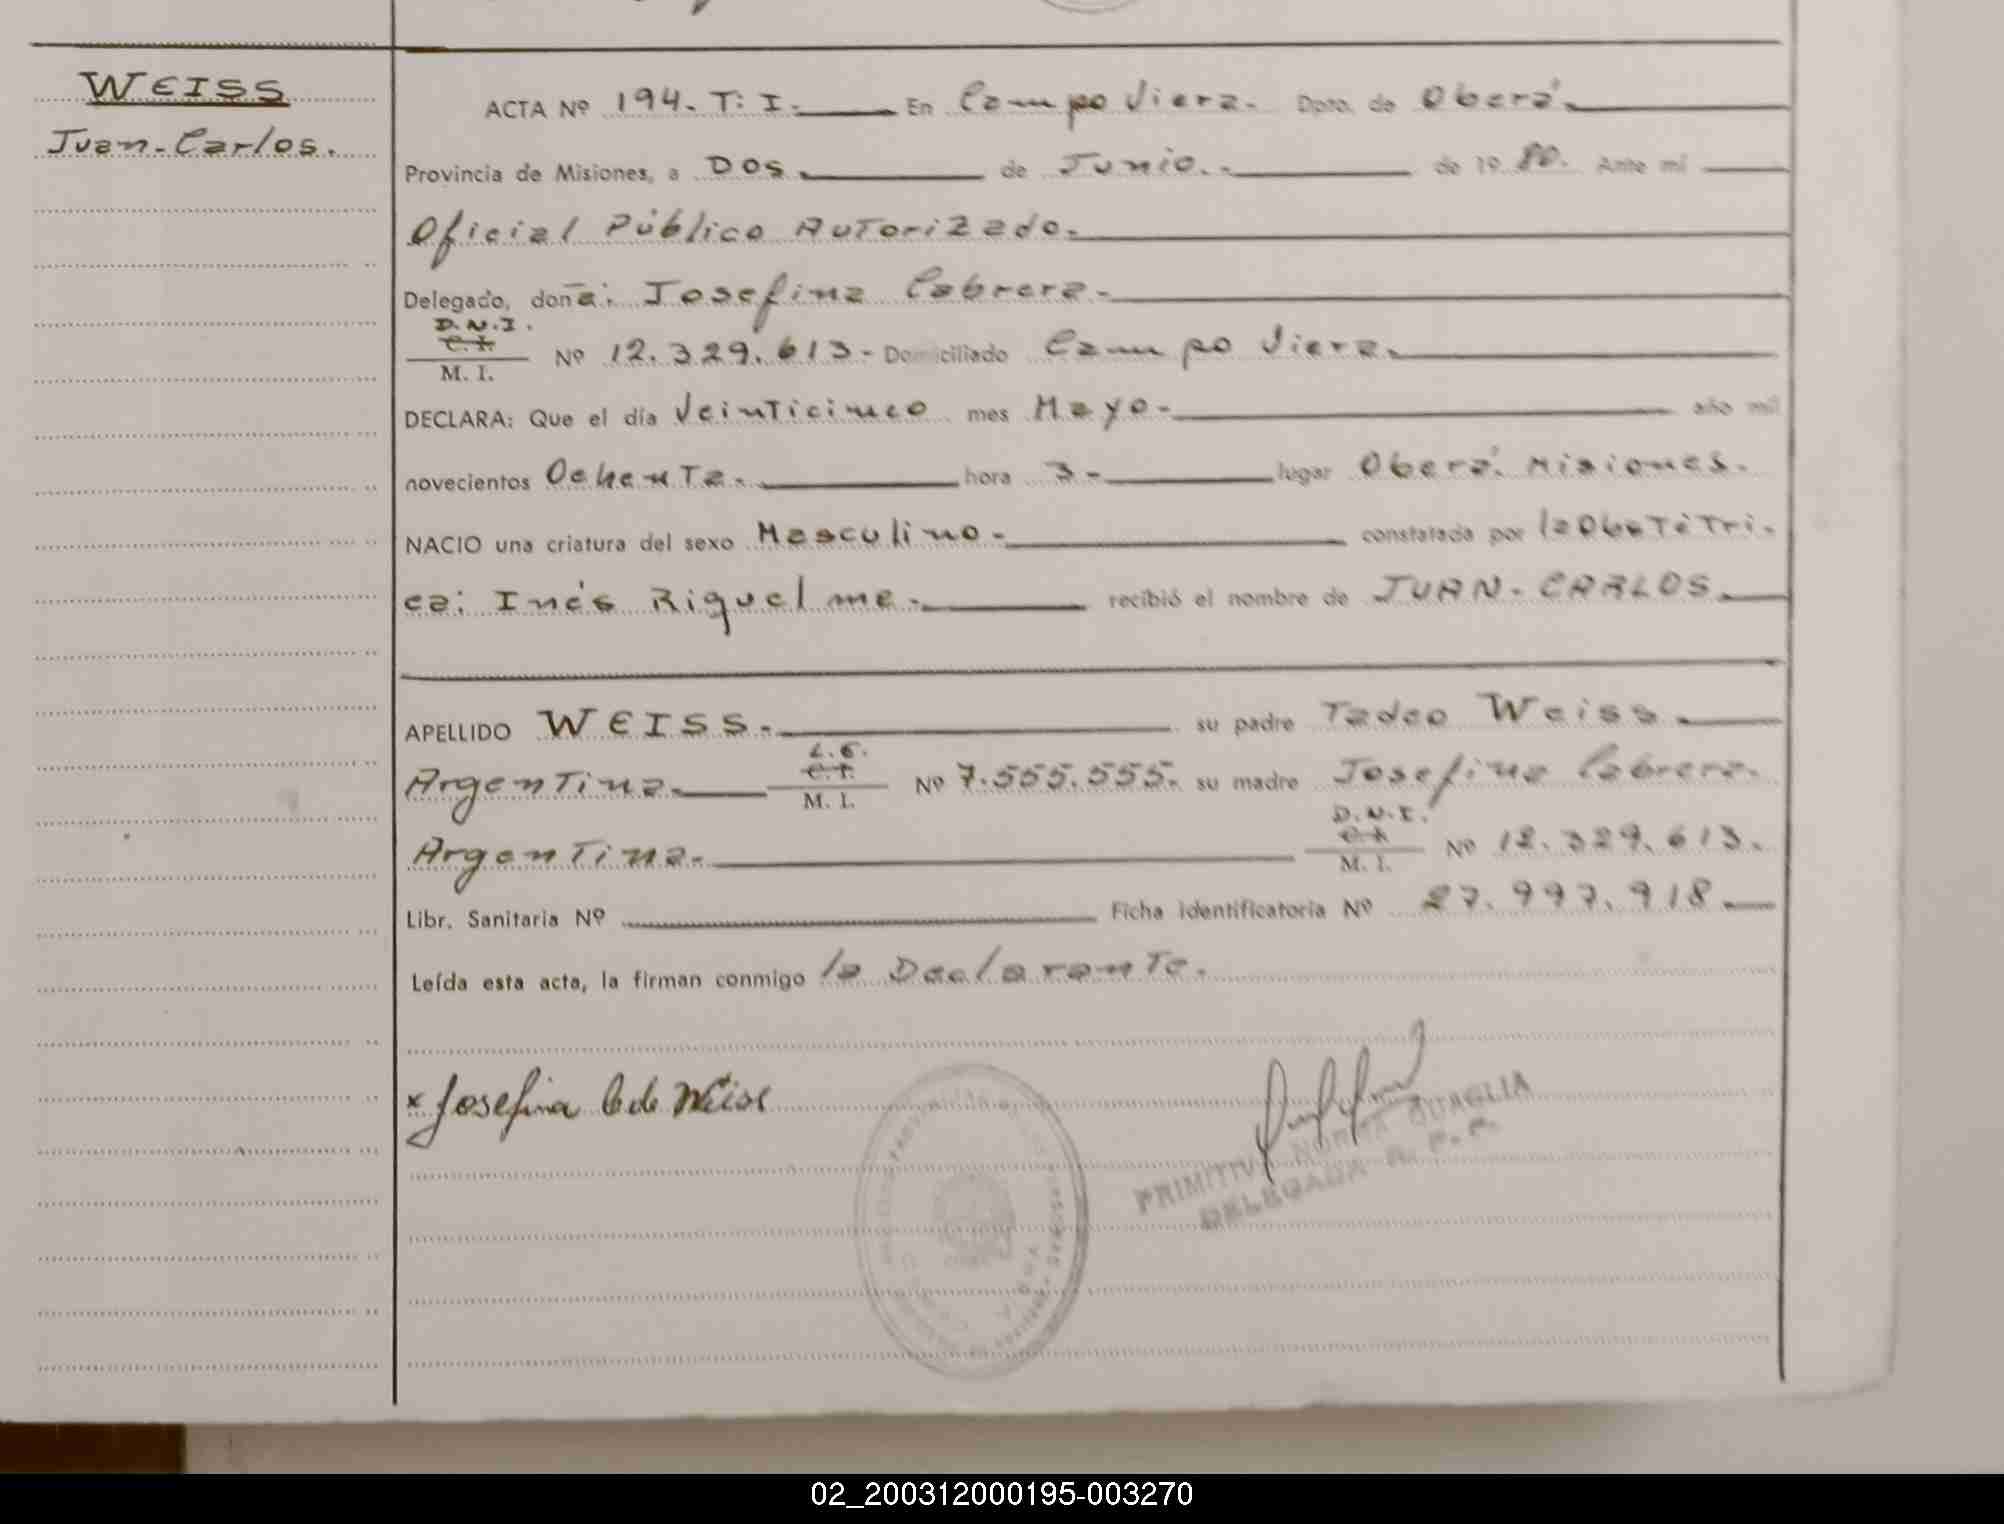 WEISS
Juan-Carlos.
ACTA Nº 194. T: I. En Campo Viera. Dpto. de Oberá.
Provincia de Misiones, a Dos de Junio. de 19 80. Ante mí
Oficial Público Autorizado.
Delegado, doña: Josefina Cabrera.
D.N.I.
C. I.
M. I.
Nº 12.329.613- Domiciliado Campo Viera.
DECLARA: Que el día Veinticinco mes Mayo- año mil
novecientos Ochenta. hora 3- lugar Oberá. Misiones.
NACIO una criatura del sexo Masculino- constatada por la Obstétri-
ca: Inés Riquelme. recibió el nombre de JUAN-CARLOS.
APELLIDO WEISS. su padre Tadeo Weiss
L.E.
C. I.
Argentina. M. I. Nº 7.555.555. su madre Josefina Cabrera.
D.N.I.
C. I.
Argentina. M. I. Nº 12.329.613.
Libr. Sanitaria Nº Ficha identificatoria Nº 27.997.918
Leída esta acta, la firman conmigo la Declarante.
x Josefina C de Weiss
PRIMITIVA NORMA QUAGLIA
DELEGADA R. P. P.
02_200312000195-003270